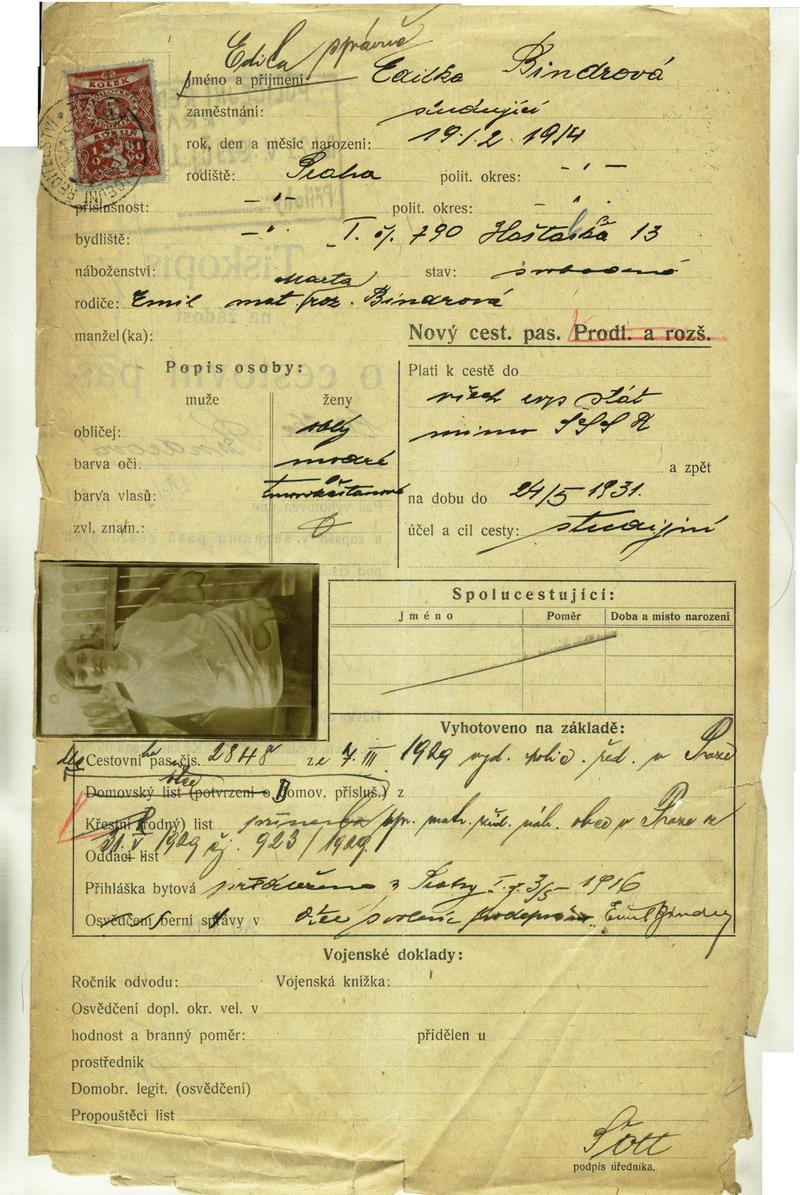 Edita správně
jméno a příjmení: Editka Bindrová
KOLEK
5
KORUN
1919
zaměstnání: studující
rok, den a měsíc narození: 19/2 1914
rodiště: Praha polit. okres: – " –
příslušnost: – " – polit. okres: "
bydliště: – " – I. čp. 790 Haštalská 13
náboženství: stav: svobodná
rodiče: Emil mat. Marta roz. Bindrová
manžel (ka):
Nový cest. pas. Prodl. a rozš.
Popis osoby:
muže ženy
obličej: oblý
barva očí: modré
barva vlasů: tmavokaštanové
zvl. znam.: 0
Platí k cestě do
všech evp. stát
mimo SSSR
a zpět
na dobu do 24/5 1931.
účel a cíl cesty: studijní
Spolucestující:
Jméno Poměr Doba a místo narození
Vyhotoveno na základě:
Cestovní pas čís. 2848 ze 7. III. 1929 vyd. polic. řed. v Praze
Domovský list (potvrzení o Domov. přísluš.) z otce
Křestní (rodný) list matr. žid. náb. obce v Praze
31. V 1929 čj. 923/1929
Oddací list
Přihláška bytová z Prahy I. 3/5 1916
Osvědčení berní správy v Otec svolení podepsán Emil Binder
Vojenské doklady:
Ročník odvodu: Vojenská knížka:
Osvědčení dopl. okr. vel. v
hodnost a branný poměr: přidělen u
prostředník
Domobr. legit. (osvědčení)
Propouštěcí list
Šott
podpis úředníka.